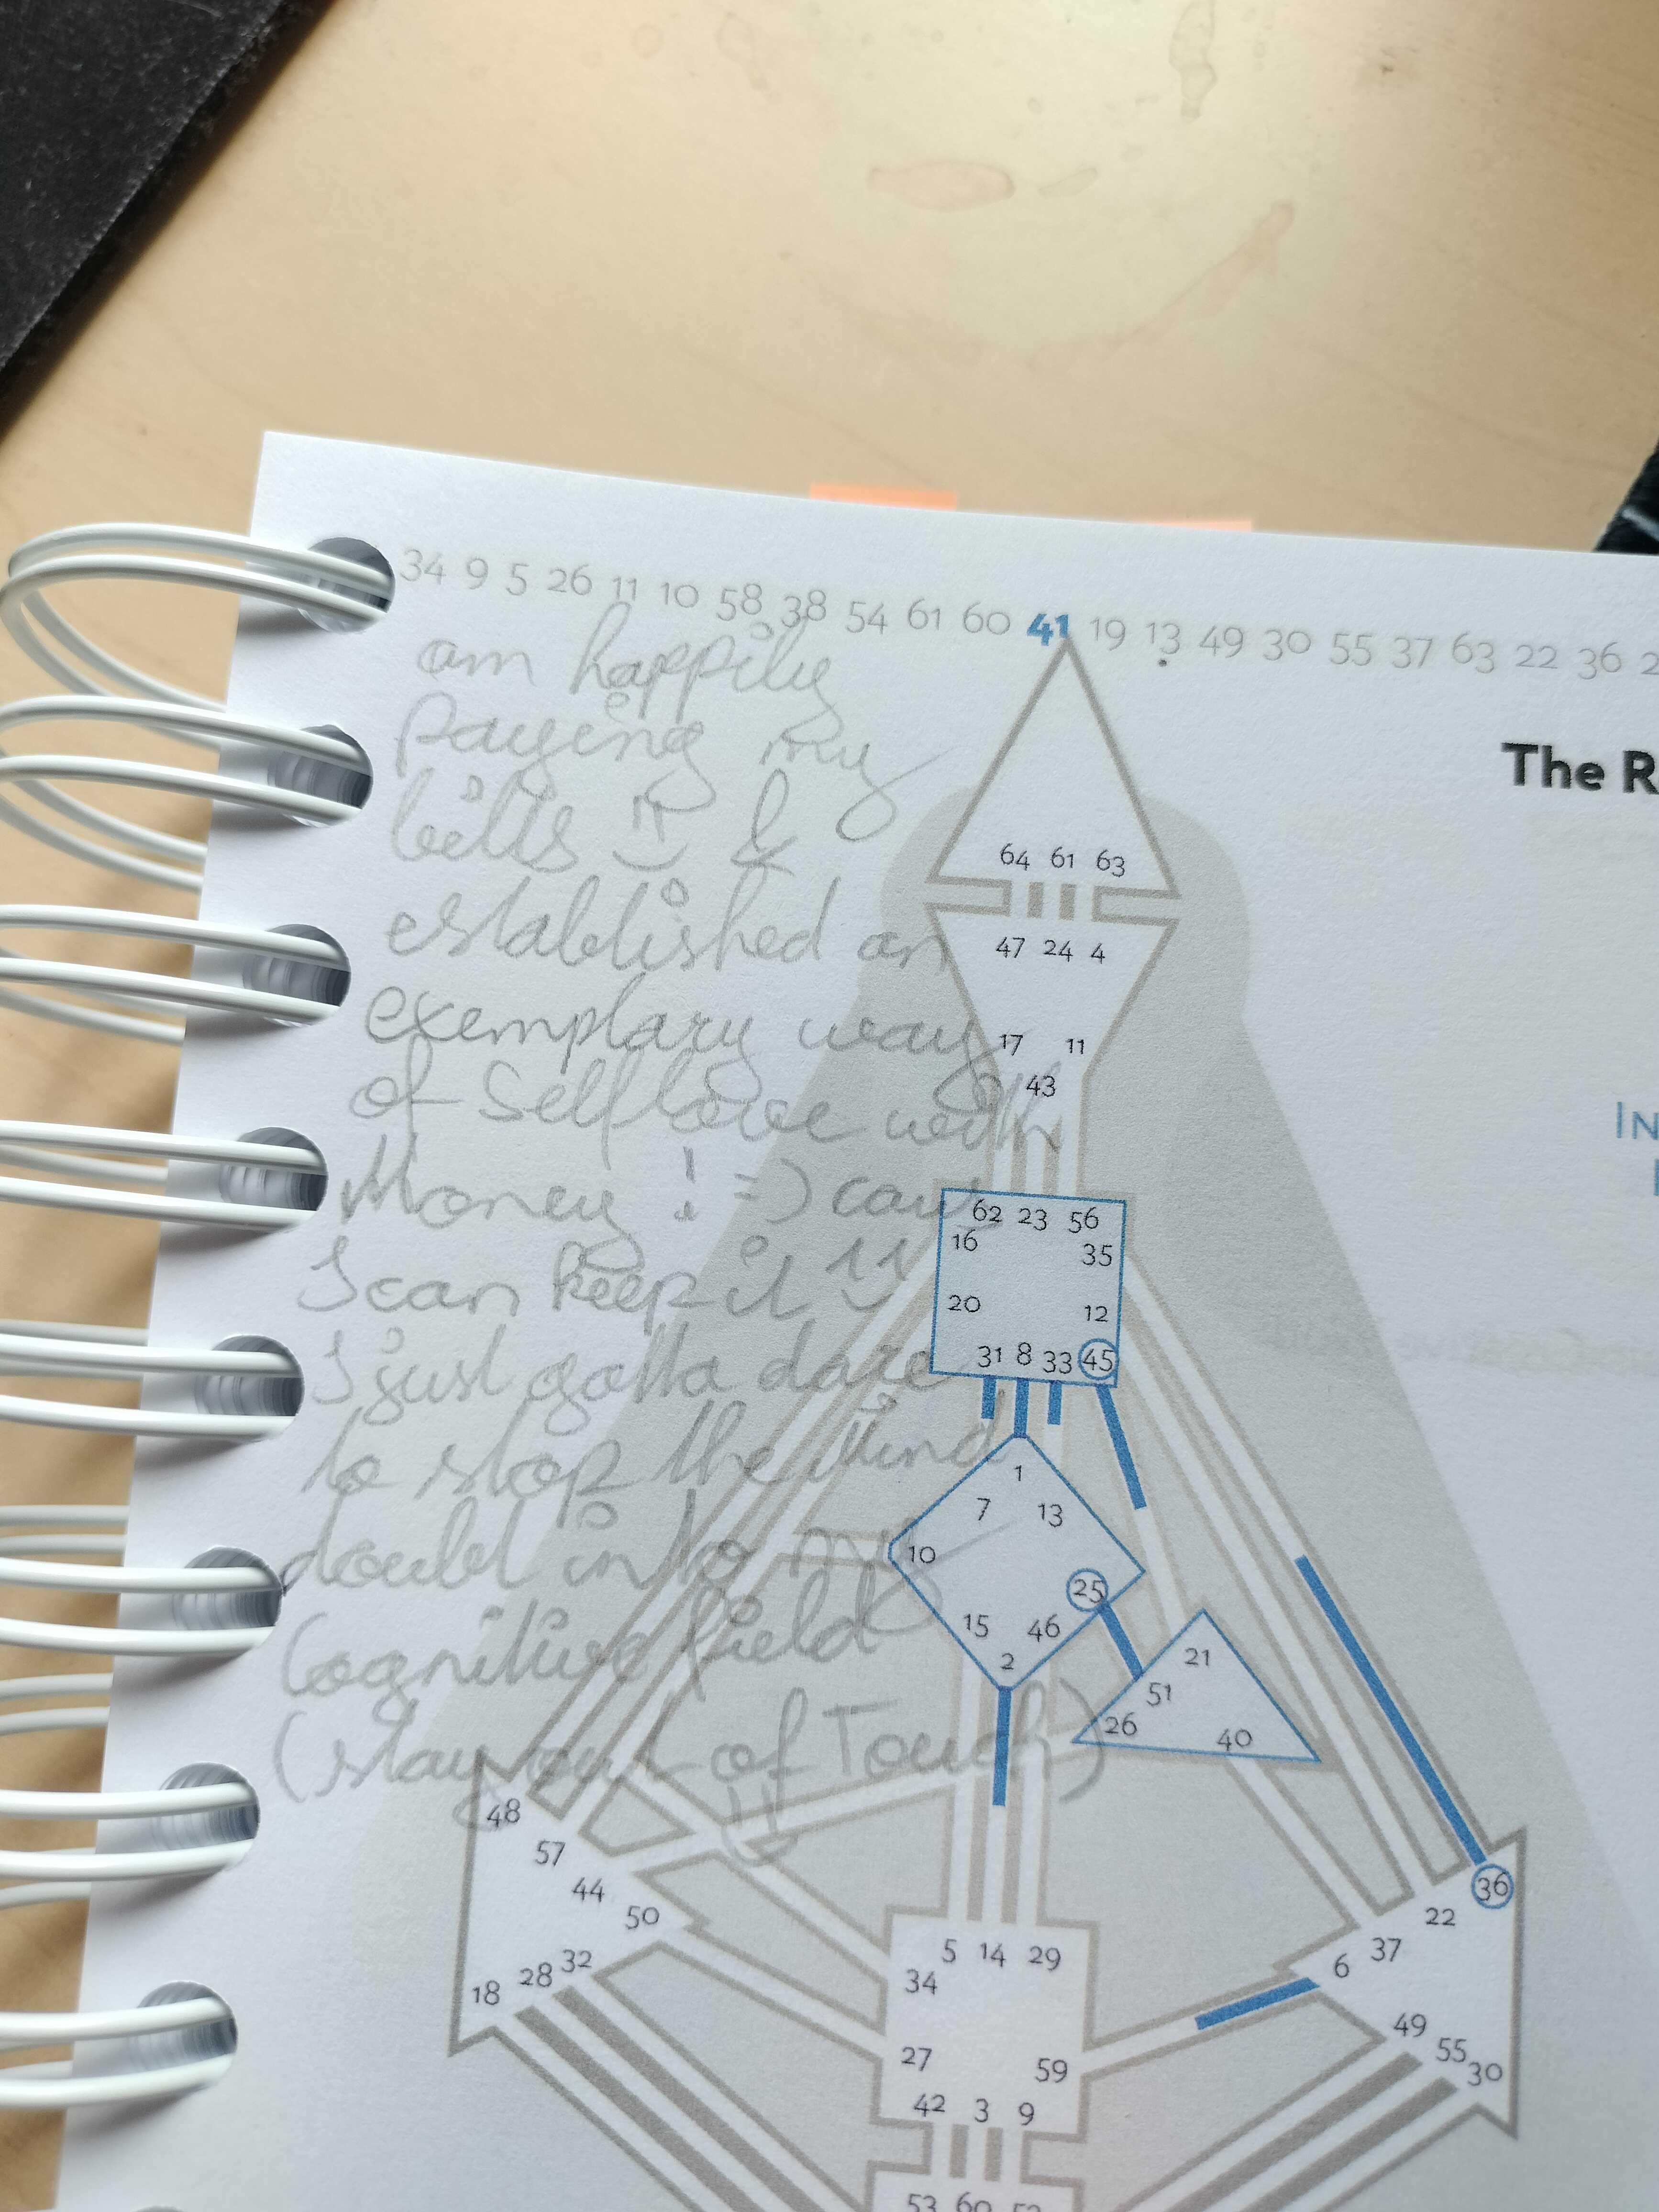 34 9 5 26 11 10 58 38 54 61 60 41 19 13 49 30 55 37 63 22 36 2
am happily
paying my
bills &
established an
exemplary way
of Selflove with
Money ! =) cause
I can keep it
I just gotta dare
to stop the Mind
doubt into my
Cognitive field
(stay out of Touch)
The R
IN
64 61 63
47 24 4
17 11
43
62 23 56
16 35
20 12
31 8 33 45
1
7 13
10
25
15 46
2
21
51
26 40
48
57
44
50
32
28
18
5 14 29
34
27
59
42 3 9
36
22
37
6
49
55
30
53 60 52